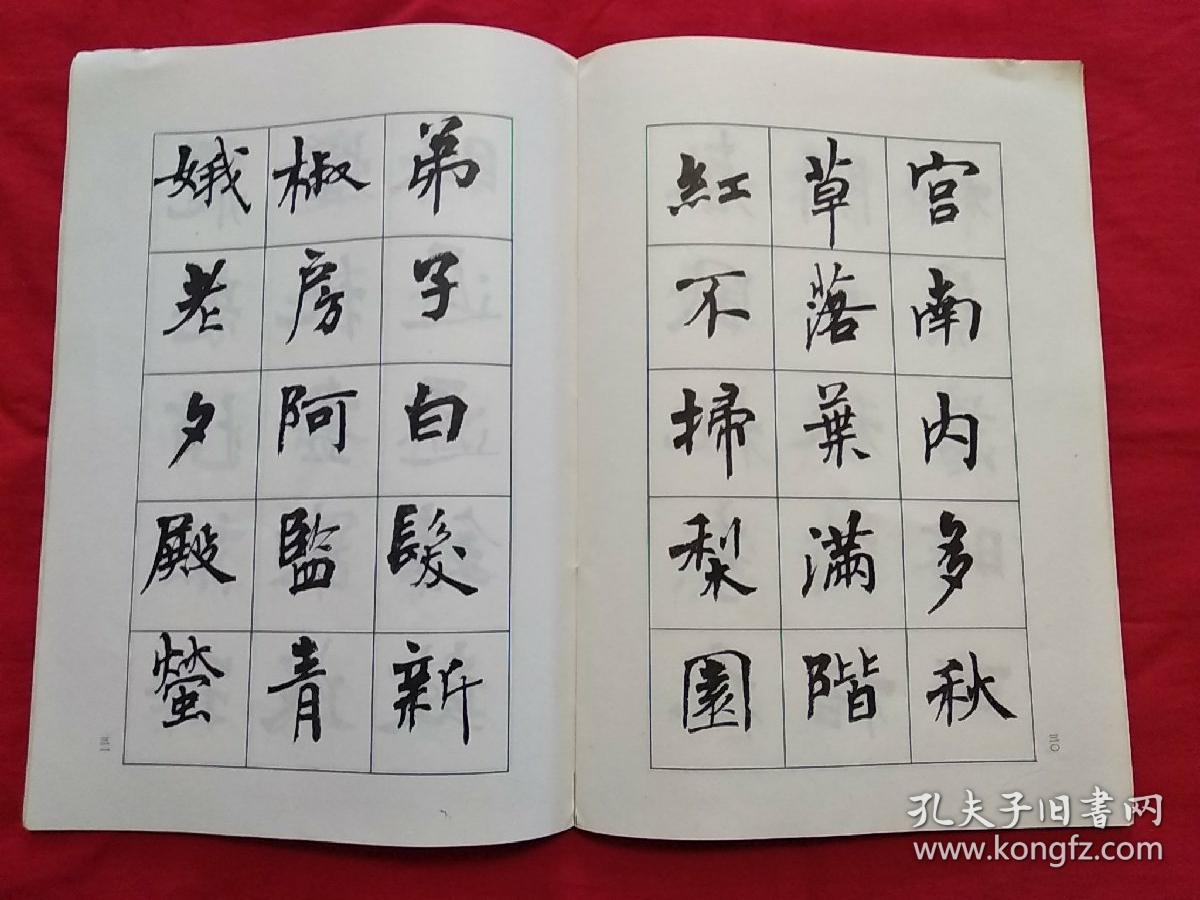 宫南内多秋
草落葉满階
紅不掃梨園
三〇
弟子白髮新
椒房阿監青
娥老夕殿螢
三一
孔夫子旧書网
www.kongfz.com